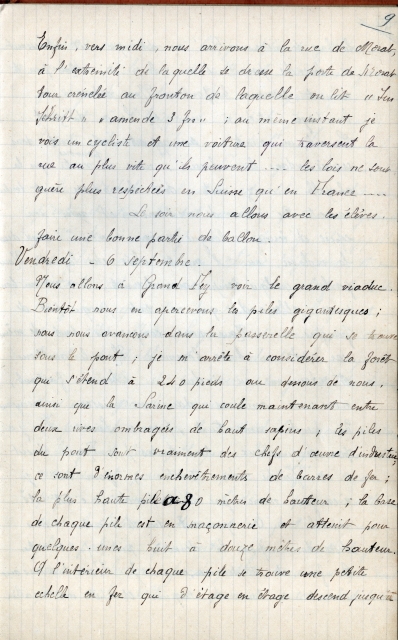 9
Enfin, vers midi, nous arrivons à la rue de Morat,
à l'extrémité de laquelle se dresse la porte de Morat
tour crénelée au fronton de laquelle on lit « Im
Schritt » « amende 3 frs » ; au même instant je
vois un cycliste et une voiture qui traversent la
rue au plus vite qu'ils peuvent .... les lois ne sont
guère plus respectées en Suisse qu'en France ....
Le soir nous allons avec les élèves
faire une bonne partie de ballon.
Vendredi - 6 septembre.
Nous allons à Grand Fey voir le grand viaduc.
Bientôt nous en apercevons les piles gigantesques ;
nous nous avançons dans la passerelle qui se trouve
sous le pont ; je m'arrête à considérer la forêt
qui s'étend à 240 pieds au dessous de nous,
ainsi que la Sarine qui coule maintenant entre
deux rives ombragées de haut sapins ; les piles
du pont sont vraiment des chefs d'œuvre d'industrie,
ce sont d'énormes enchevêtrements de barres de fer ;
la plus haute pile a 80 mètres de hauteur ; la base
de chaque pile est en maçonnerie et atteint pour
quelques-unes huit à douze mètres de hauteur.
A l'intérieur de chaque pile se trouve une petite
échelle en fer qui d'étage en étage descend jusqu'à